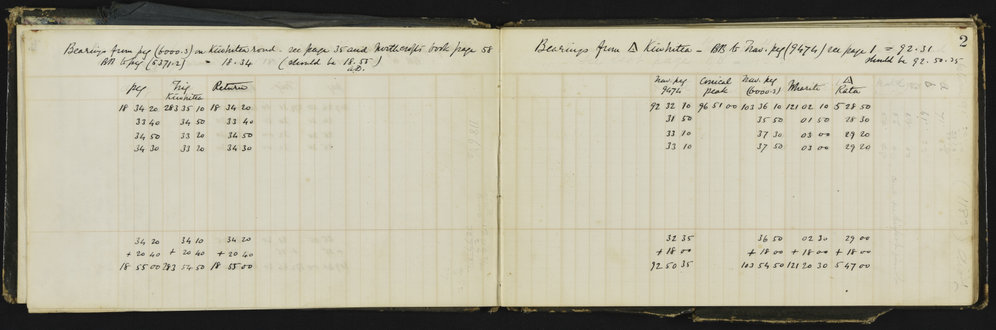 Bearings from peg (6000.s) on Kiwitea road - see page 35 and Northcrofts book page 58
BB to peg (5371.2) = 18.34 (should be 18.55)
Peg Trig Kiwitea Return
18 34 20 283 35 10 18 34 20
33 40 34 50 33 40
34 50 33 20 34 50
34 30 33 20 34 30
34 20 34 10 34 20
+ 20 40 + 20 40 + 20 40
18 55 00 283 54 50 18 55 00
2
Bearings from △ Kiwitea - BB to Trav. peg (9474) see page 1 = 92.31
should be 92.50.35
Trav. peg 9474 Conical peak Trav. peg (6000.s) Wherite △ Rata
92 32 10 96 51 00 103 36 10 121 02 10 5 28 50
31 50 35 50 01 50 28 30
33 10 37 30 03 00 29 20
33 10 37 50 03 00 29 20
32 35 36 50 02 30 29 00
+ 18 00 + 18 00 + 18 00 + 18 00
92 50 35 103 54 50 121 20 30 5 47 00